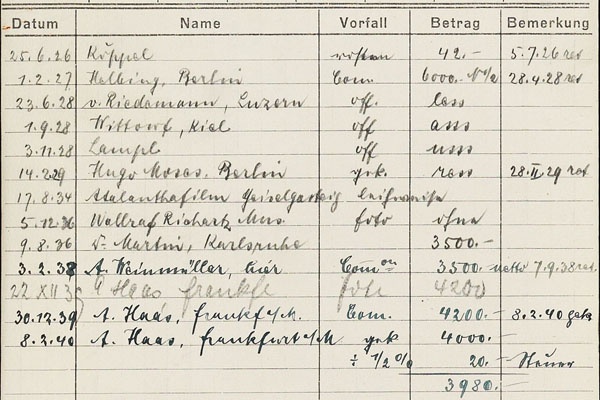 Datum Name Vorfall Betrag Bemerkung
25.6.26 Köppel 42.- 5.7.26 ret
1.2.27 Helbing, Berlin Com. 6000.- 28.4.28 ret
23.6.28 v. Riedemann, Luzern off. less
1.9.28 Wittorf, Kiel off
3.11.28 Lampl off
14.2.29 Hugo Moses, Berlin gek. 28.II.29 ret
17.8.34 Atalanthafilm Geiselgasteig leihweise
5.12.36 Wallraf Richartz Mus. foto ohne
9.8.36 Dr. Martin, Karlsruhe 3500.-
3.2.38 A. Weinmüller, hier Com 3500.- netto 7.9.38 ret.
22 XII 39 A Haas Frankf. foto 4200
30.12.39 A. Haas, Frankf a/M. Com. 4200.- 8.2.40 gek
8.2.40 A. Haas, Frankfurt a/M gek 4000.-
÷ 1/2 % 20.- Steuer
3980.-